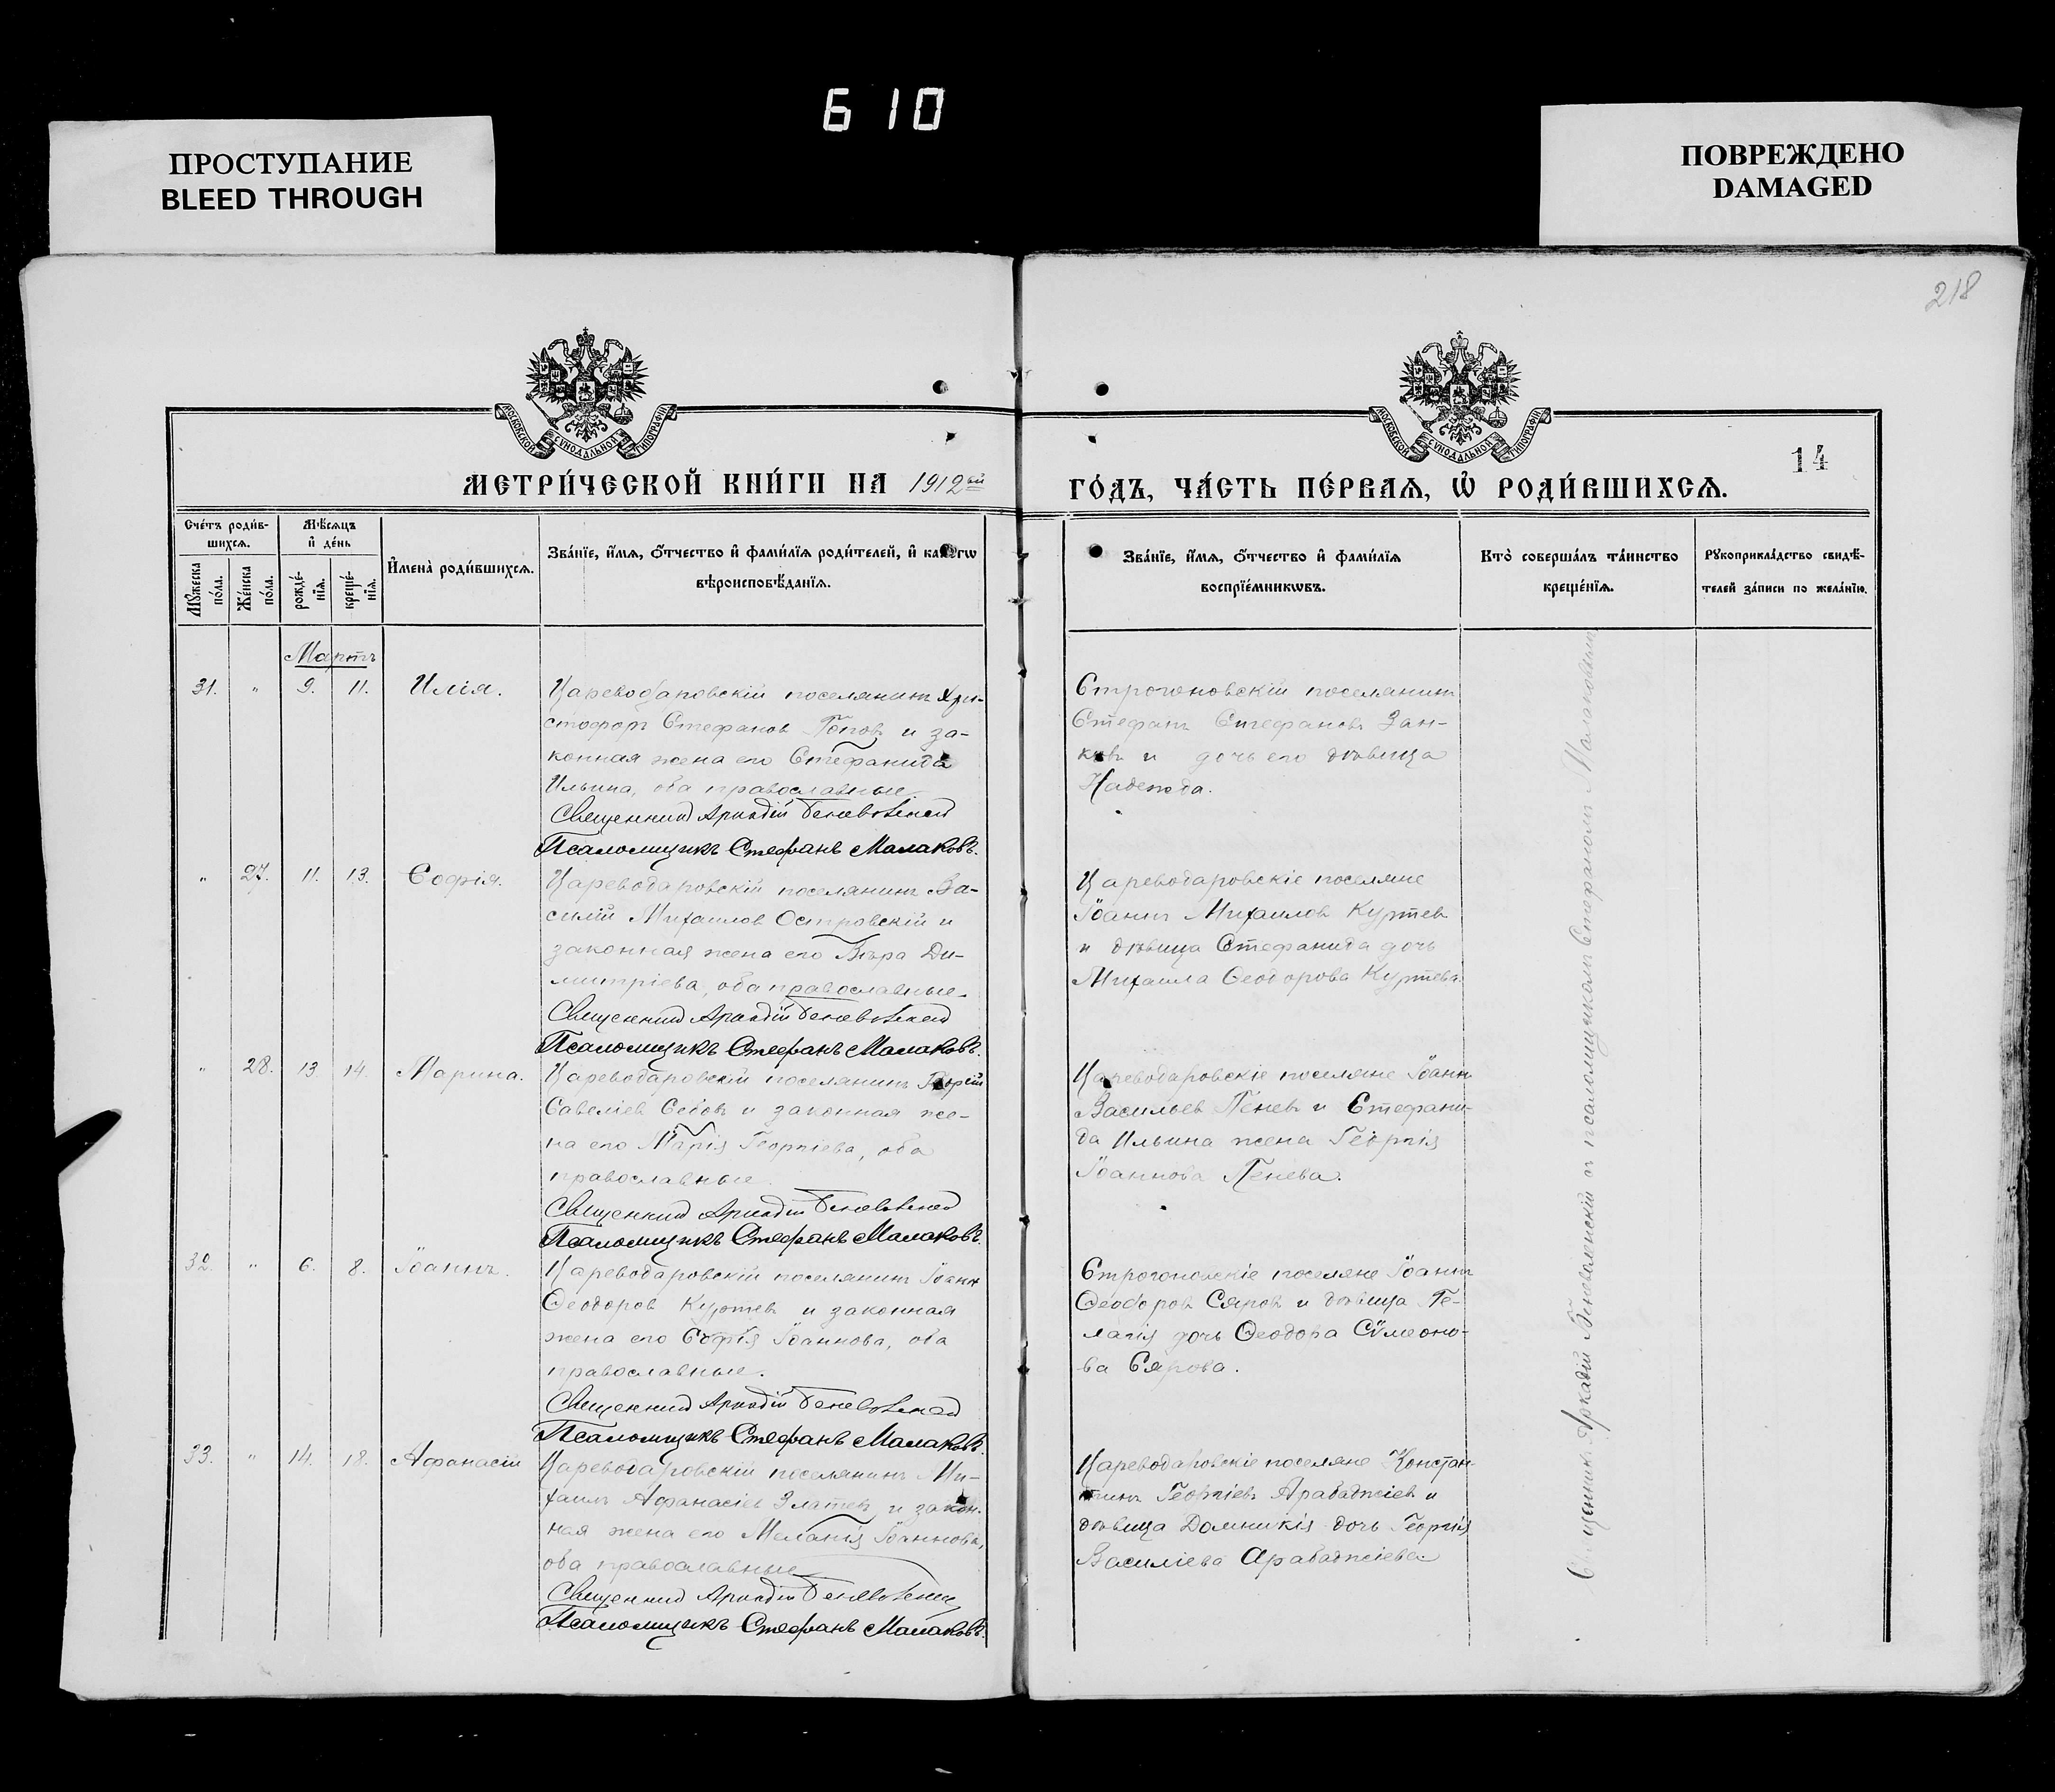 610
ПРОСТУПАНИЕ
BLEED THROUGH
ПОВРЕЖДЕНО
DAMAGED
218
МОСКОВСКОЙ СУНОДАЛЬНОЙ ТИПОГРАФІИ
МОСКОВСКОЙ СУНОДАЛЬНОЙ ТИПОГРАФІИ
14
МЕТРИ́ЧЕСКОЙ КНИ́ГИ НА 1912ый
ГО́ДЪ, ЧА́СТЬ ПЕ́РВАѦ, Ѡ҆ РОДИ́ВШИХСѦ.
Сче́тъ роди́в-
шихсѧ.
Мѣ́сѧцъ
и҆ де́нь
Мꙋ́жеска
по́ла.
Же́нска
по́ла.
рожде́-
нїѧ.
креще́-
нїѧ.
И҆мена̀ роди́вшихсѧ.
Зва́нїе, и҆́мѧ, ѻ҆́тчество и҆ фами́лїѧ роди́телей, и҆ како́гѡ
вѣроисповѣ́данїѧ.
Зва́нїе, и҆́мѧ, ѻ҆́тчество и҆ фами́лїѧ
воспрїе́мникѡвъ.
Кто̀ соверша́лъ та́инство
креще́нїѧ.
Рꙋкоприкла́дство свидѣ́-
телей за́писи по жела́нїю.
Мартъ
31. " 9. 11. Илія.
Царевода ровскій поселянинъ Хри-
стофоръ Стефановъ Геновъ и за-
конная жена его Стефанида
Ильина, оба православные.
Священник Аркадій Беневоленскій
Псаломщикъ Стефанъ Малаковъ.
Строгоновскій поселянинъ
Стефанъ Стефановъ Зан-
ковъ и дочь его дѣвица
Надежда.
" 27. 11. 13. Софія.
Цареводаровскій поселянинъ Ва-
силій Михаиловъ Островскій и
законная жена его Вѣра Ди-
митріева, оба православные.
Священник Аркадій Беневоленскій
Псаломщикъ Стефанъ Малаковъ.
Цареводаровскіе поселяне
Іоаннъ Михаиловъ Куртевъ
и дѣвица Стефанида дочь
Михаила Ѳеодорова Куртева.
" 28. 13 14. Марина.
Цареводаровскій поселянинъ Георгій
Савеліев Седовъ и законная же-
на его Марія Георгіева, оба
православные.
Священник Аркадій Беневоленскій
Псаломщикъ Стефанъ Малаковъ.
Цареводаровскіе поселяне Іоаннъ
Васильев Геневъ и Стефани-
да Ильина жена Георгія
Іоаннова Генева.
32. " 6. 8. Іоаннъ.
Цареводаровскій поселянинъ Іоаннъ
Ѳеодоров Куртев и законная
жена его Софія Іоаннова, оба
православные.
Священник Аркадій Беневоленскій
Псаломщикъ Стефанъ Малаковъ.
Строгоновскіе поселяне Іоаннъ
Ѳеодоровъ Сяровъ и дѣвица Пе-
лагія дочь Ѳеодора Сѵмеоно-
ва Сярова.
33. " 14. 18. Афанасій
Цареводаровскій поселянинъ Ми-
хаилъ Афанасіев Златев и закон-
ная жена его Меланія Іоаннова,
оба православные
Священник Аркадій Беневоленскій
Псаломщикъ Стефанъ Малаковъ.
Цареводаровскіе поселяне Констан-
тинъ Георгіевъ Арабаджіев и
дѣвица Домникія дочь Георгія
Василіева Арабаджіева.
Священникъ Аркадій Беневоленскій и псаломщикомъ Стефаномъ Малаковымъ